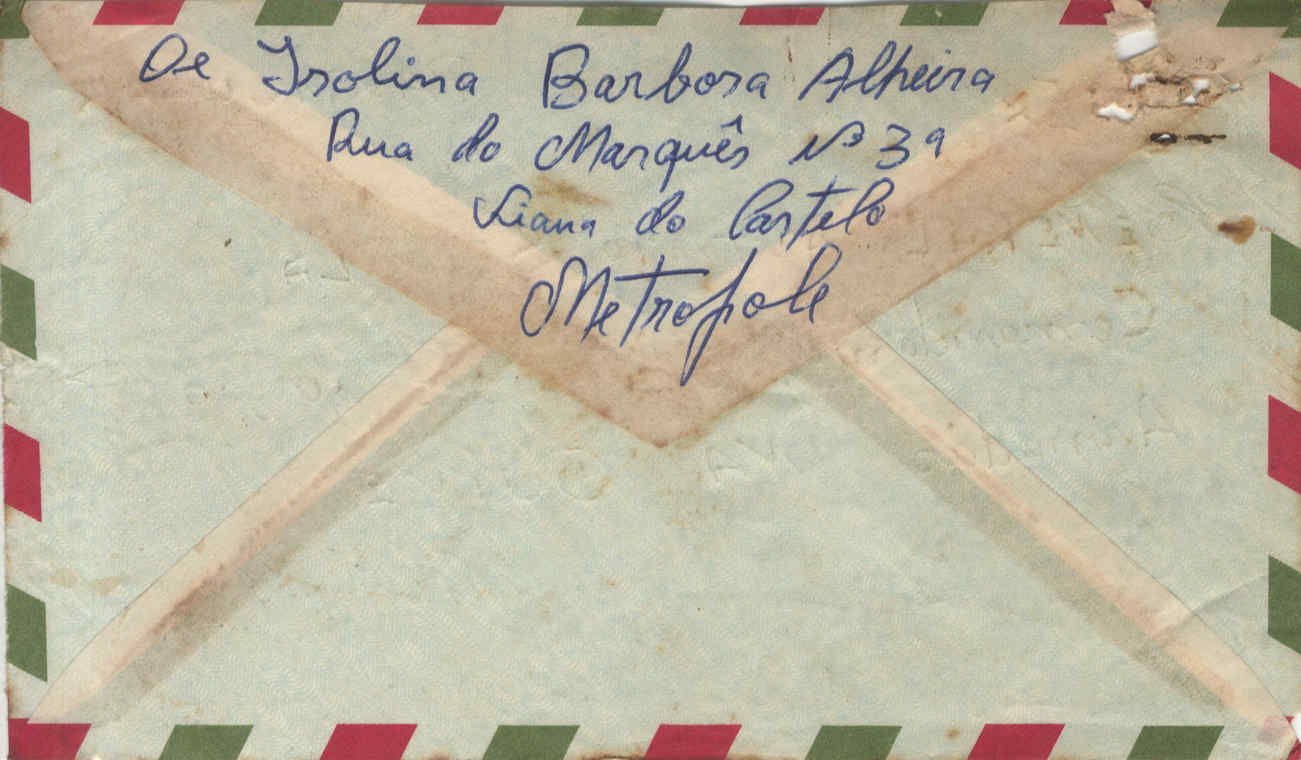 De Isolina Barbosa Alheira
Rua do Marquês Nº 39
Viana do Castelo
Metropole